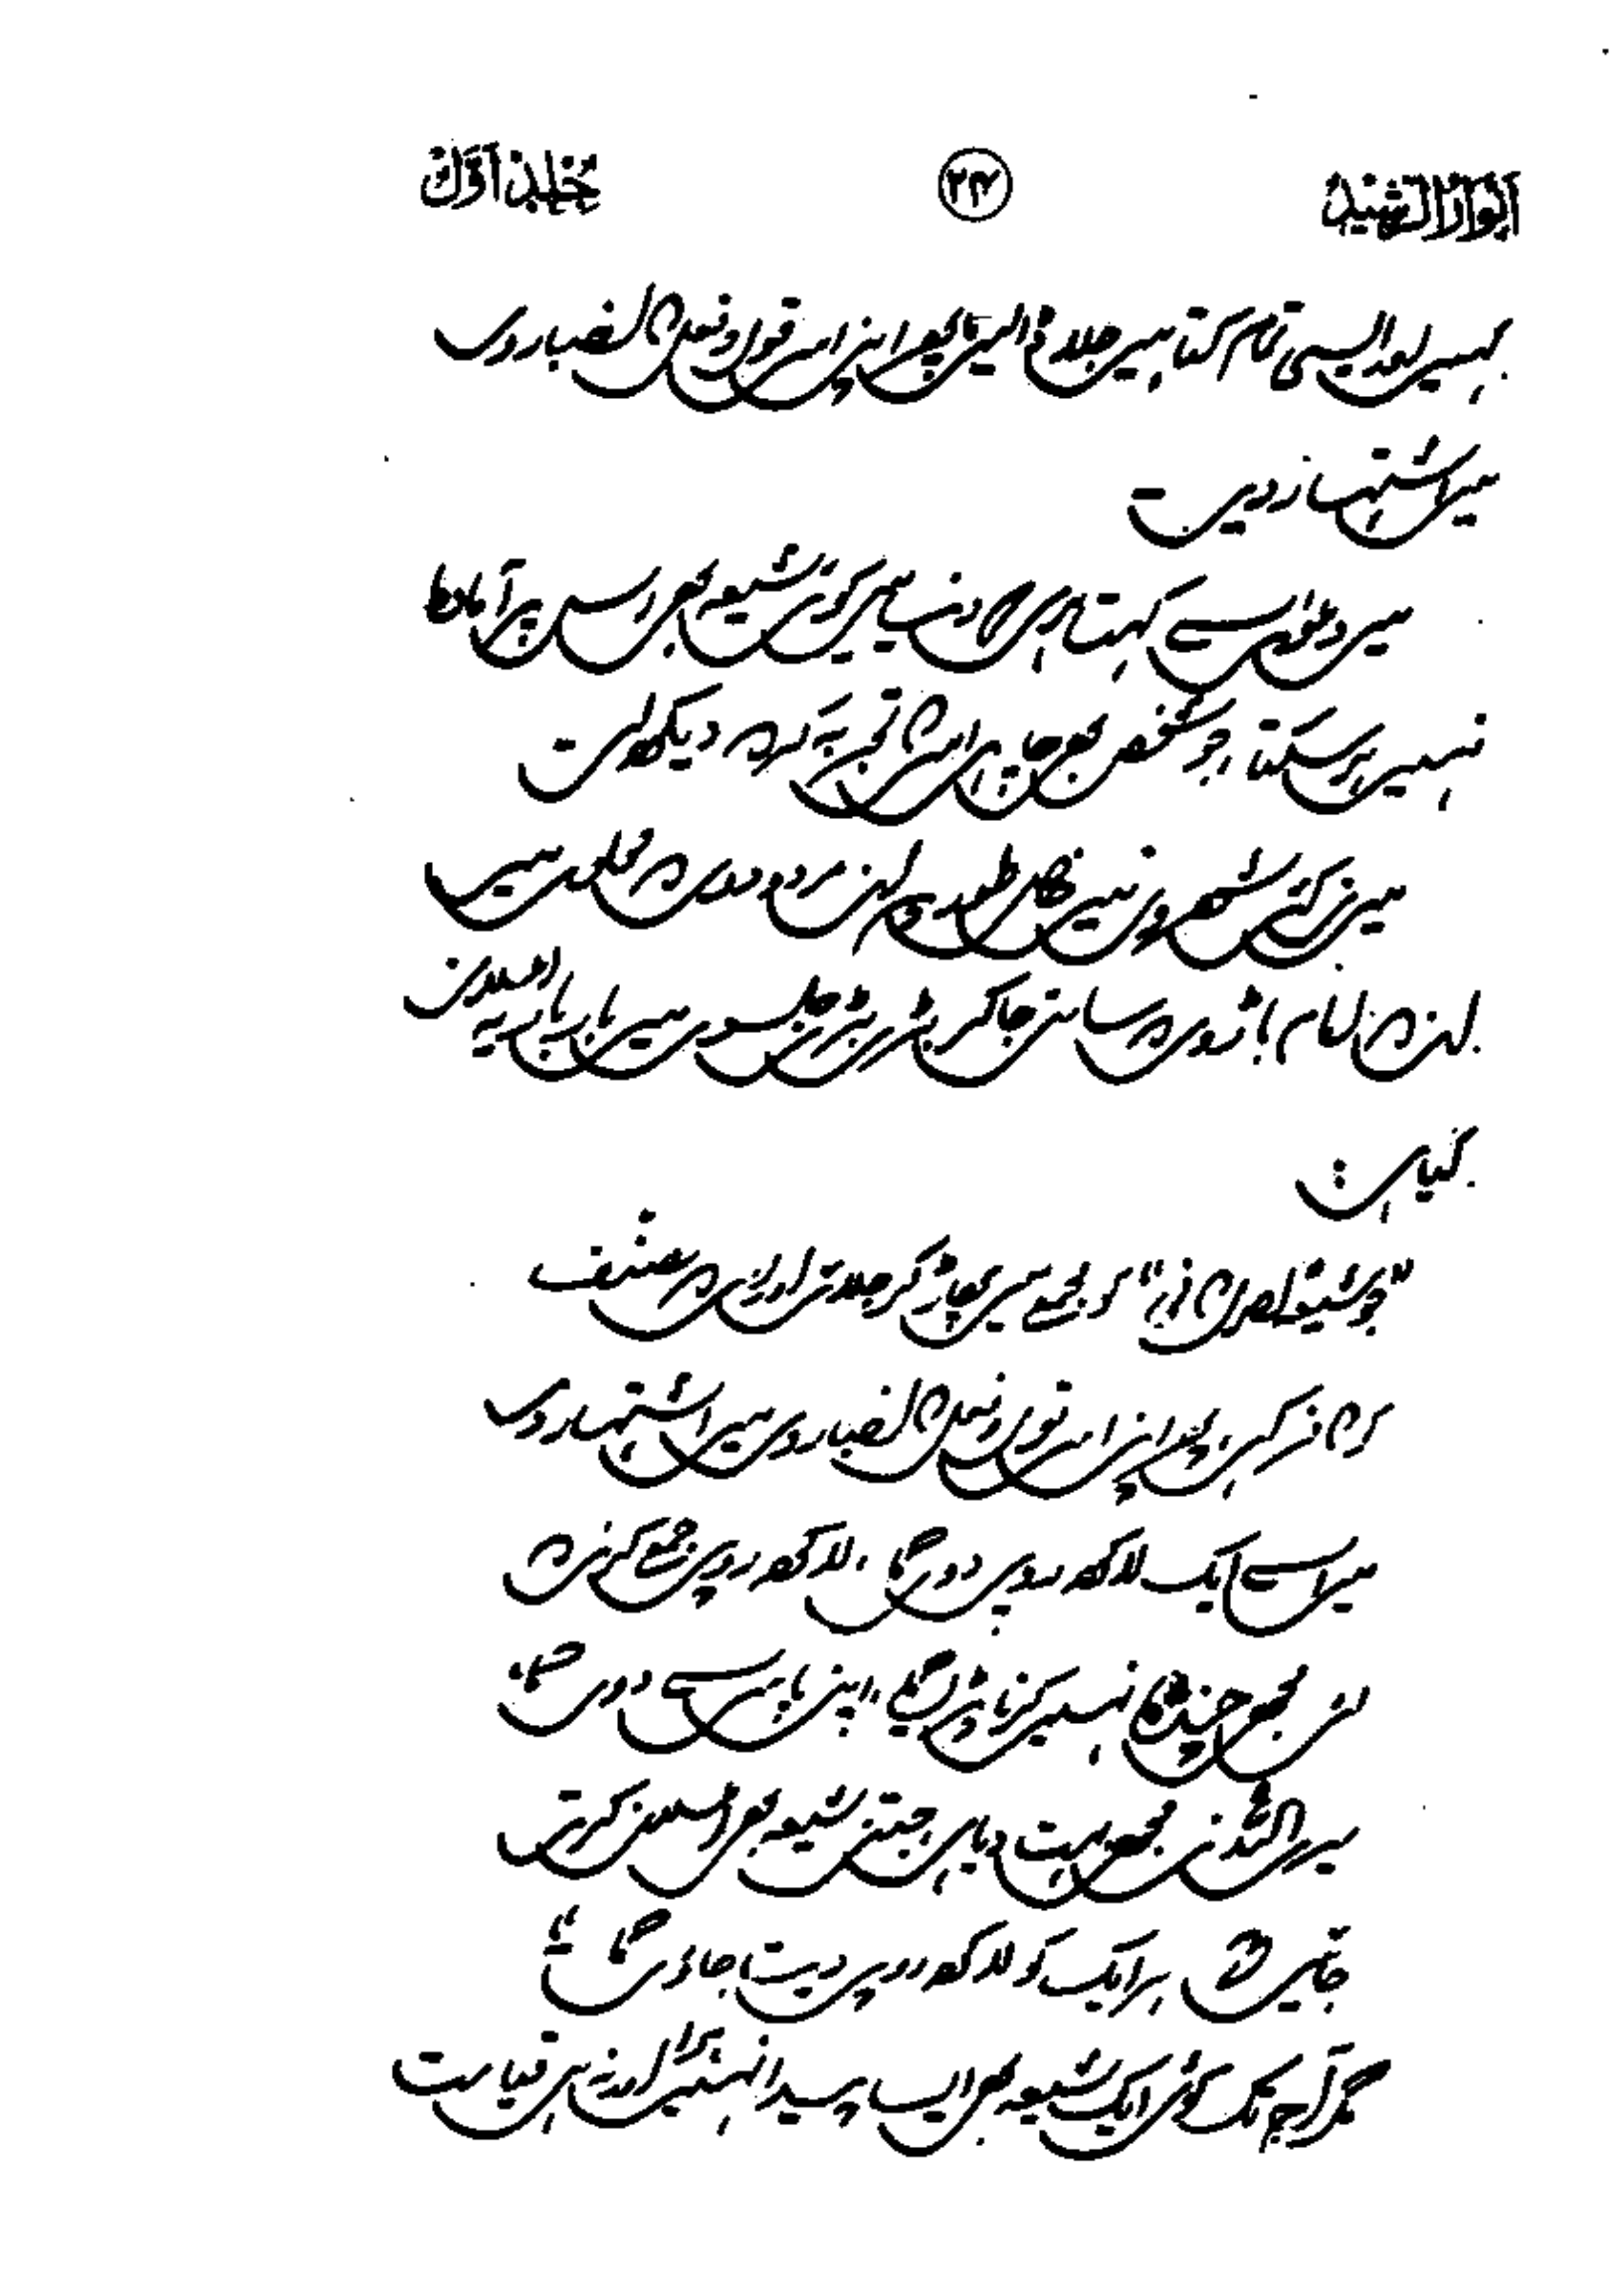 انوار الرشید ۲۴۷ جلد اول
کہیں اور ایسی تمام کتابیں جلا ڈالیں پھر اپنے اس قول و فعل کا اخباروں
میں اشتہار دیں۔
میں دعوے سے کہتا ہوں کہ دنیا میں کوئی شیعہ بھی اس پر آمادہ
نہیں ہو سکتا، جو شخص بھی چاہے اس کا تجربہ کر کے دیکھ لے۔
میں نے کئی شہروں میں خاص طور پر ان مردودوں کے محلوں میں
ان کے امام باڑوں کے سامنے جا کر بڑے بڑے جلسوں میں بارہا یہ اعلان
کیا ہے :
"جو شیعہ "اصول کافی" کو مجمع میں پھاڑ کر جلائے اور اس کے مصنف
کو کافر کہے، پھر اپنے اس قول و فعل کا اخباروں میں اشتہار دے
میں اسے ایک لاکھ روپے دوں گا، لاکھ روپے جمع کرنے کے
لئے مجھے چندہ نہیں کرنا پڑے گا، اپنے پاس سے دوں گا،
میرے اللہ نے مجھے بہت دیا ہے، جتنے شیعہ بھی اعلان کرتے
جائیں گے ہر ایک کو لاکھ روپے دیتا جاؤں گا۔"
مگر آج تک کوئی ایک شیعہ بھی ایسا پیدا نہیں ہوا اور نہ ہی قیامت